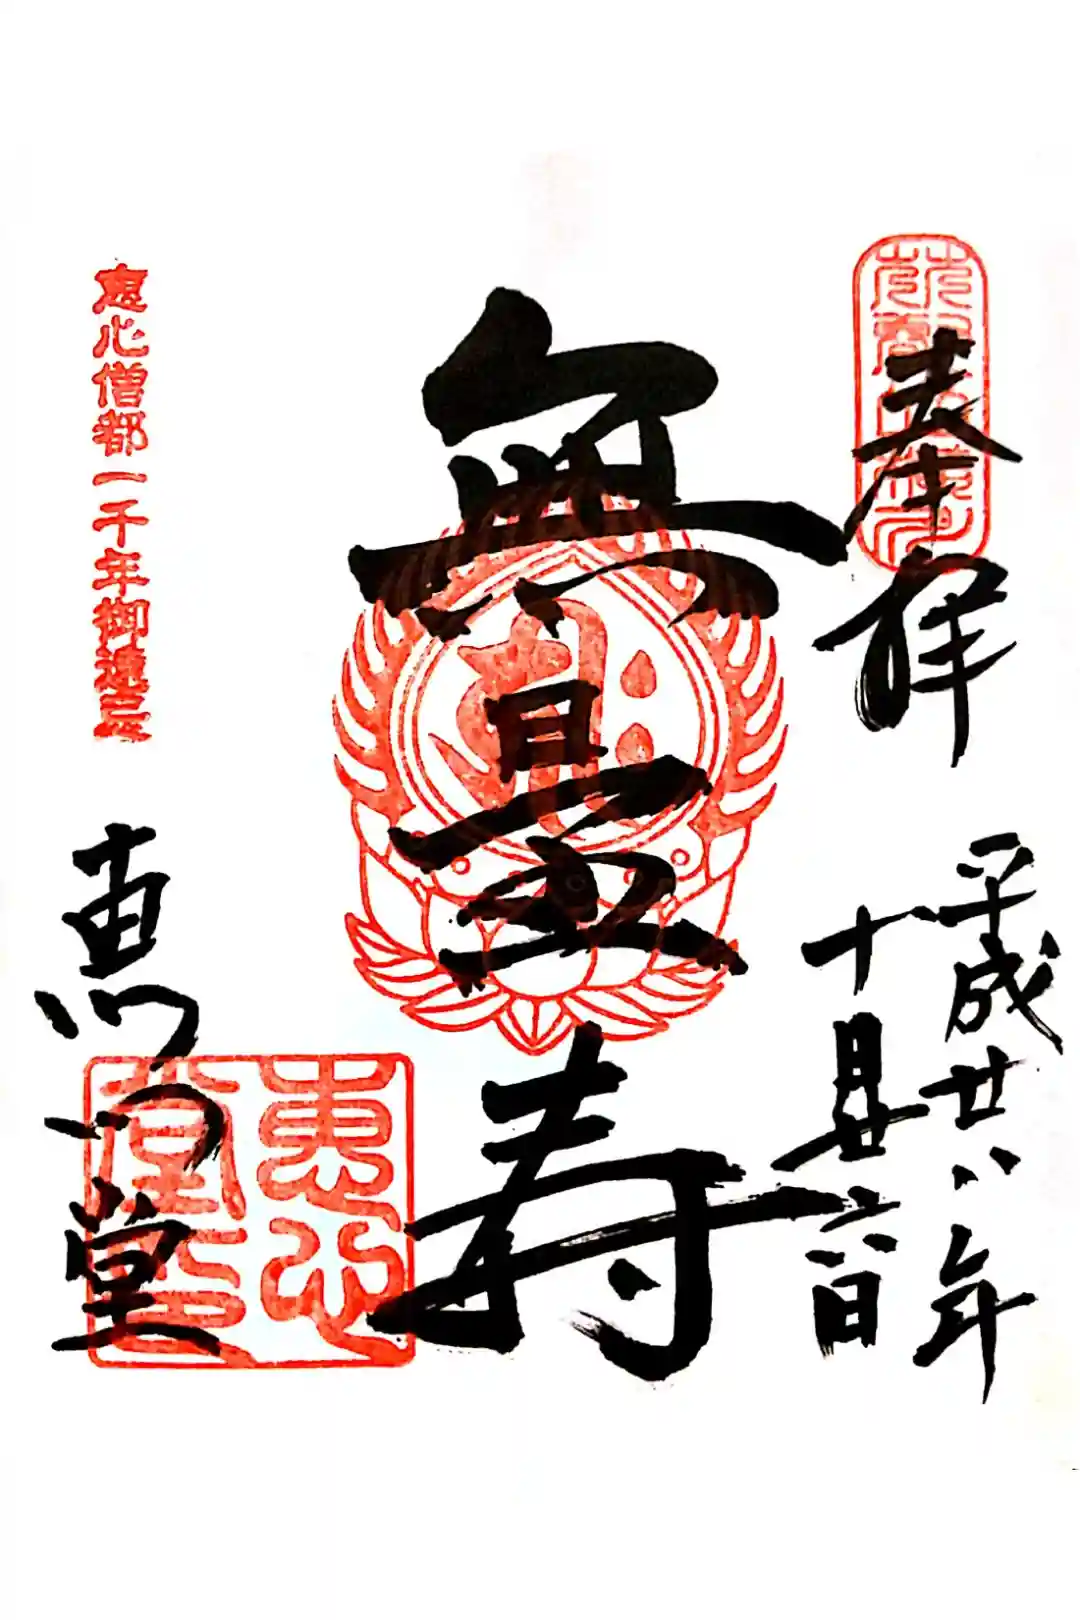 奉拝
平成廿八年
十月廿六日
無量寿
恵心僧都一千年御遠忌
恵心堂
恵心堂印